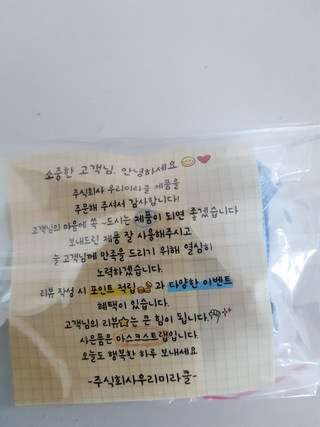 소중한 고객님, 안녕하세요
주식회사 우리미라클 제품을
주문해 주셔서 감사합니다!
고객님의 마음에 쏙 ~드시는 제품이 되면 좋겠습니다
보내드린 제품 잘 사용해주시고
늘 고객님께 만족을 드리기 위해 열심히
노력하겠습니다.
리뷰 작성 시 포인트 적립 과 다양한 이벤트
혜택이 있습니다.
고객님의 리뷰는 큰 힘이 됩니다.
사은품은 마스크스트랩입니다.
오늘도 행복한 하루 보내세요
-주식회사우리미라클-